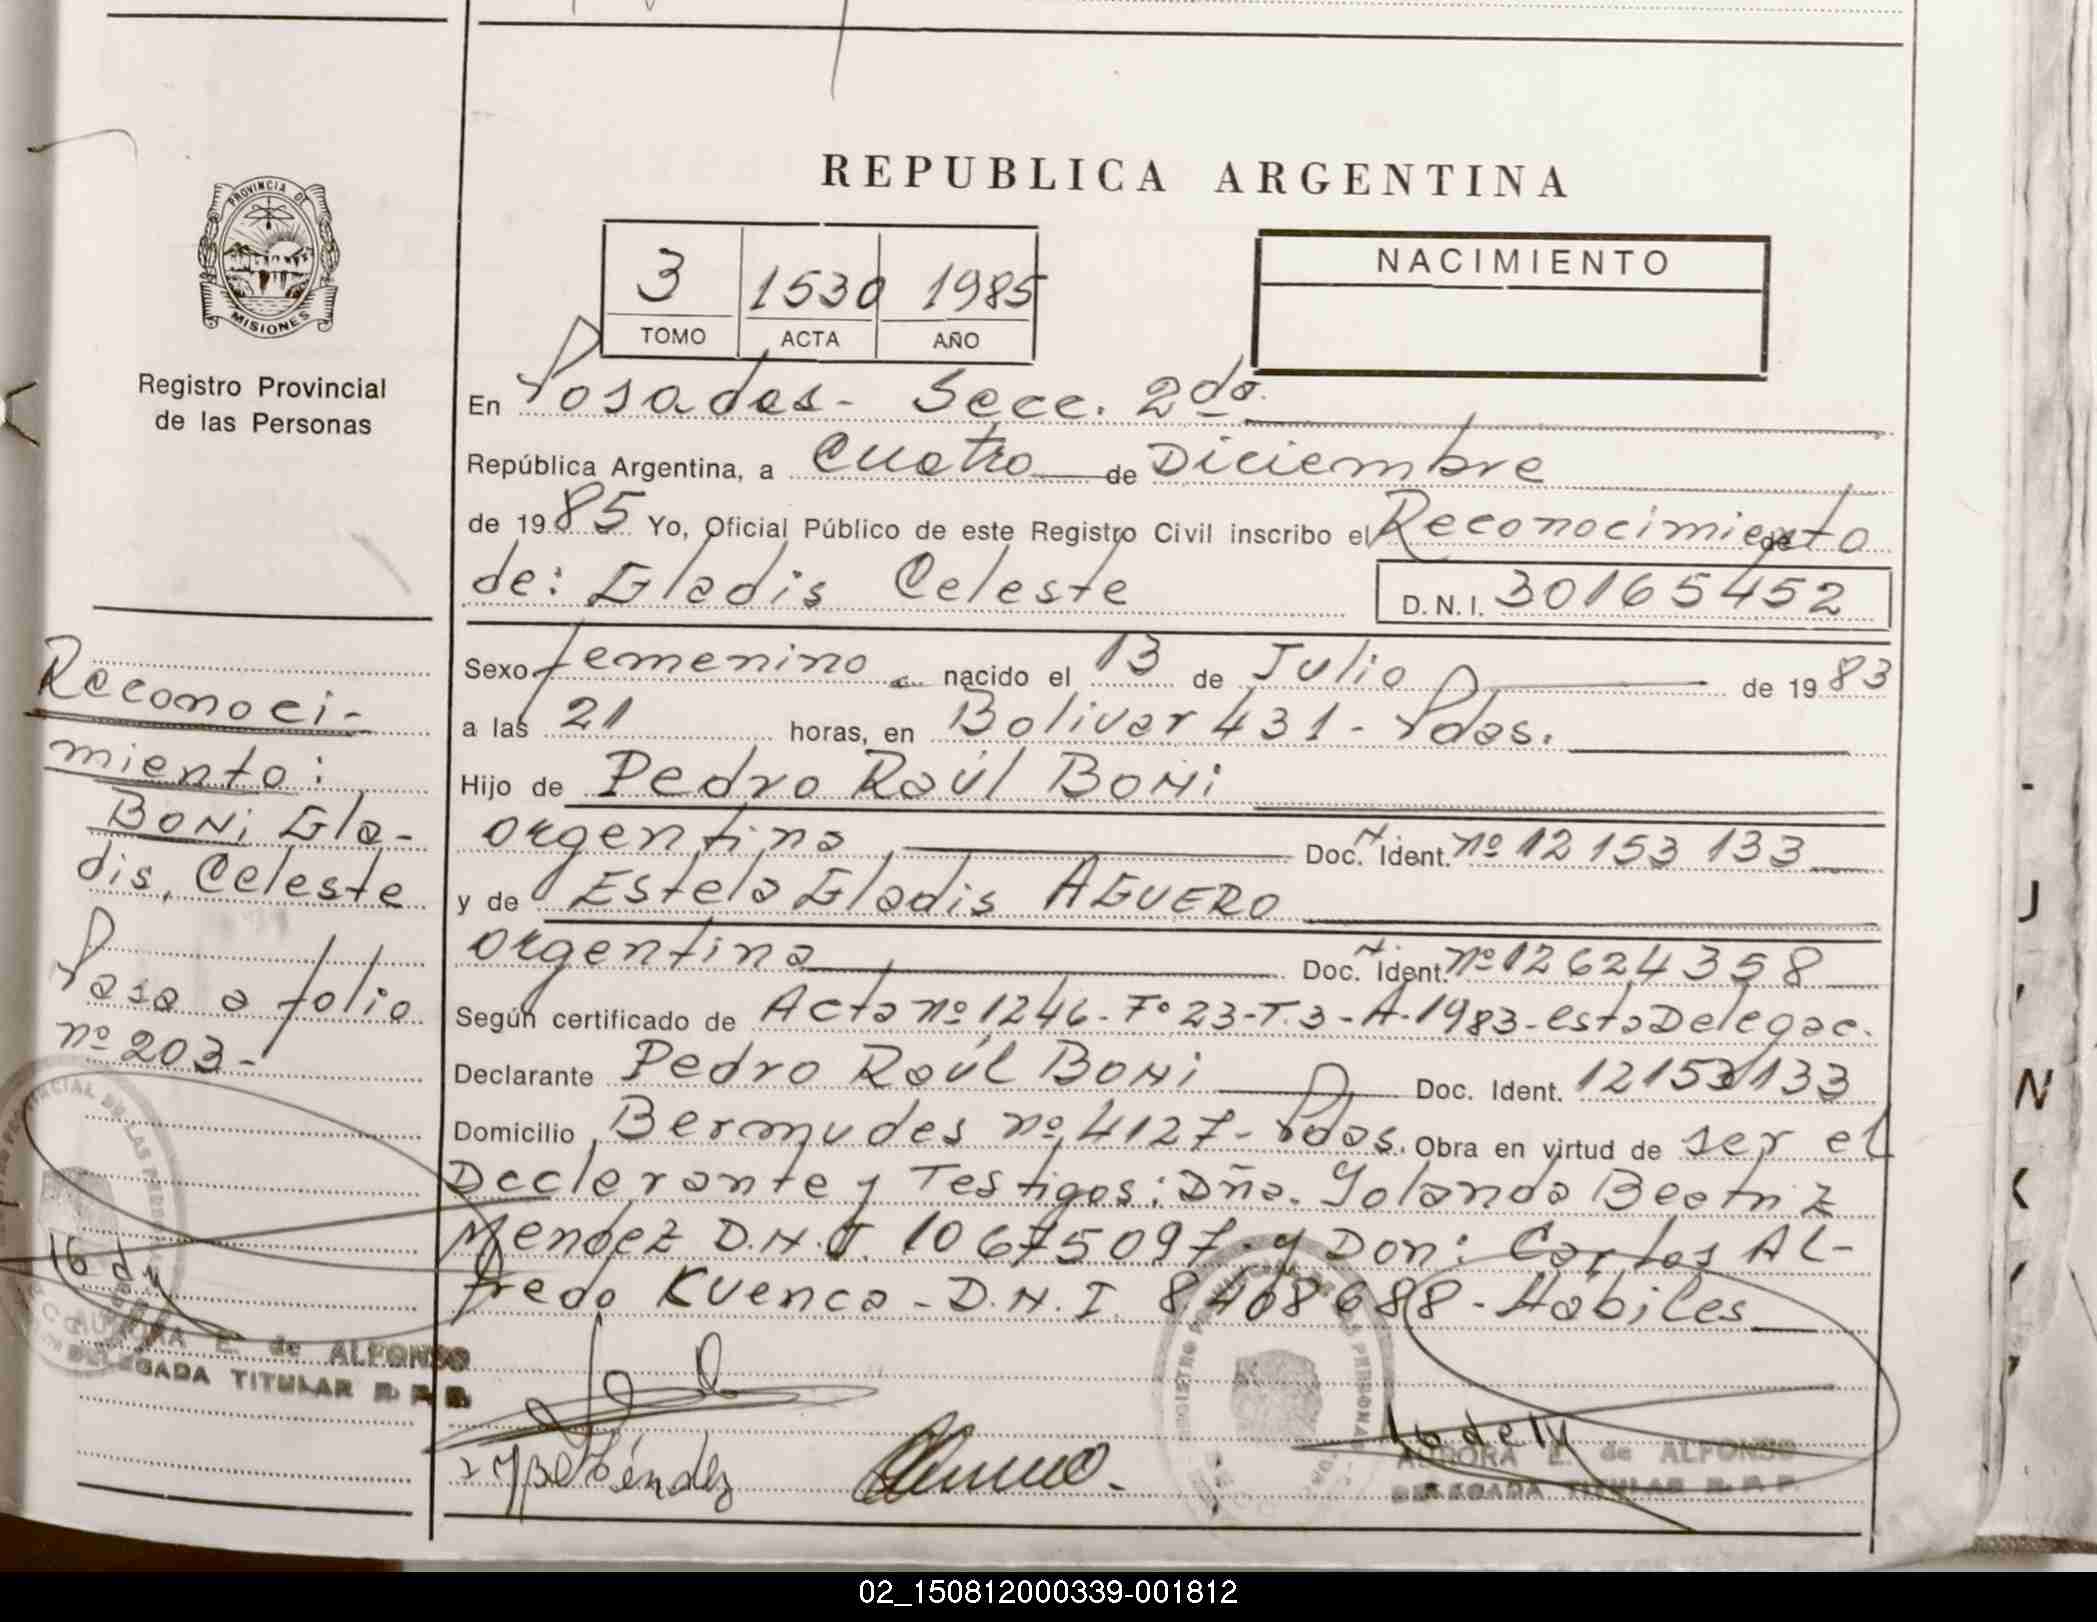 REPUBLICA ARGENTINA
PROVINCIA DE
MISIONES
Registro Provincial
de las Personas
3 1530 1985
TOMO ACTA AÑO
NACIMIENTO
En Posadas- Secc. 2da.
República Argentina, a Cuatro de Diciembre
de 1985 Yo, Oficial Público de este Registro Civil inscribo el Reconocimiento de
de: Gladis Celeste D.N.I. 30165452
Sexo femenino nacido el 13 de Julio de 1983
a las 21 horas, en Bolivar 431 - Pdas.
Hijo de Pedro Raúl BONi
argentino Doc. Ident. nº 12 153 133
y de Estela Gladis AGUERO
argentina Doc. Ident. nº 12624358
Según certificado de Acta nº 1246-Fº23-T.3-A-1983-esta Delegac.
Declarante Pedro Raúl BONi Doc. Ident. 12153133
Domicilio Bermudes nº 4127- Pdas. Obra en virtud de ser el
Declarante y Testigos: Dña. Yolanda Beatriz
Mendez D.N.I. 10675097- y Don: Carlos Al-
fredo Kuenca - D.N.I. 8408688 - Habiles
Reconoci-
miento:
BONi Gla-
dis, Celeste
Pasa a folio
nº 203-
AURORA E. de ALFONSO
DELEGADA TITULAR R. P. P.
AURORA E. de ALFONSO
DELEGADA TITULAR R. P. P.
02_150812000339-001812